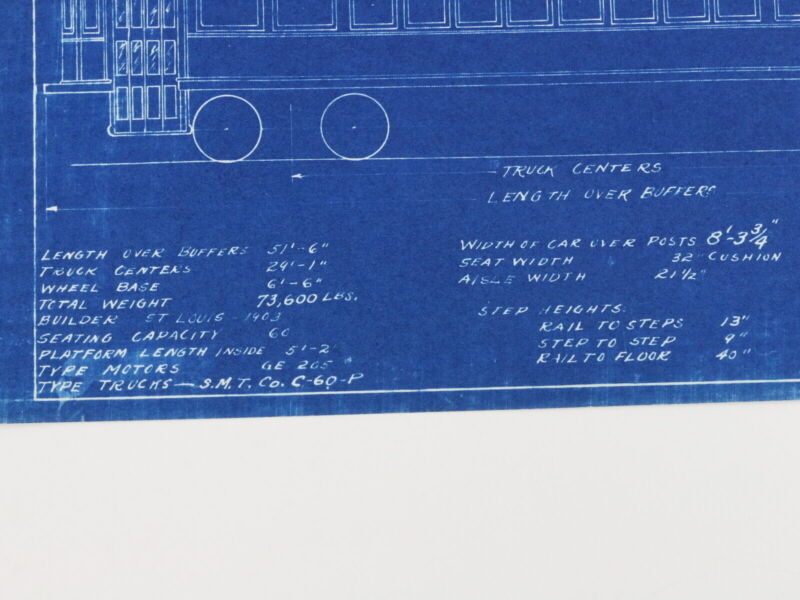 TRUCK CENTERS
LENGTH OVER BUFFERS
LENGTH OVER BUFFERS 51'-6"
TRUCK CENTERS 29'-1"
WHEEL BASE 6'-6"
TOTAL WEIGHT 73,600 LBS.
BUILDER ST LOUIS 1903
SEATING CAPACITY 60
PLATFORM LENGTH INSIDE 5'-2"
TYPE MOTORS GE 205
TYPE TRUCKS — S.M.T. CO. C-60-P
WIDTH OF CAR OVER POSTS 8'-3 3/4"
SEAT WIDTH 32" CUSHION
AISLE WIDTH 21 1/2"
STEP HEIGHTS:
RAIL TO STEPS 13"
STEP TO STEP 9"
RAIL TO FLOOR 40"